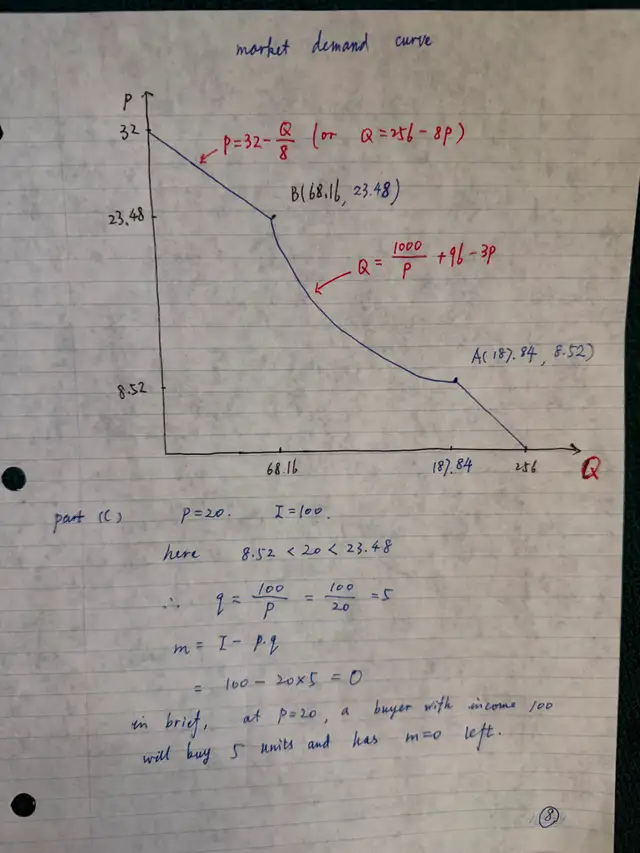 market demand curve
P
32
P=32-Q/8 (or Q=256-8P)
B(68.16, 23.48)
23.48
Q=1000/P+96-3P
A(187.84, 8.52)
8.52
68.16 187.84 256 Q
part (C) P=20. I=100.
here 8.52<20<23.48
∴ q=100/P=100/20=5
m=I-p.q
=100-20×5=0
in brief, at P=20, a buyer with income 100
will buy 5 units and has m=0 left.
8